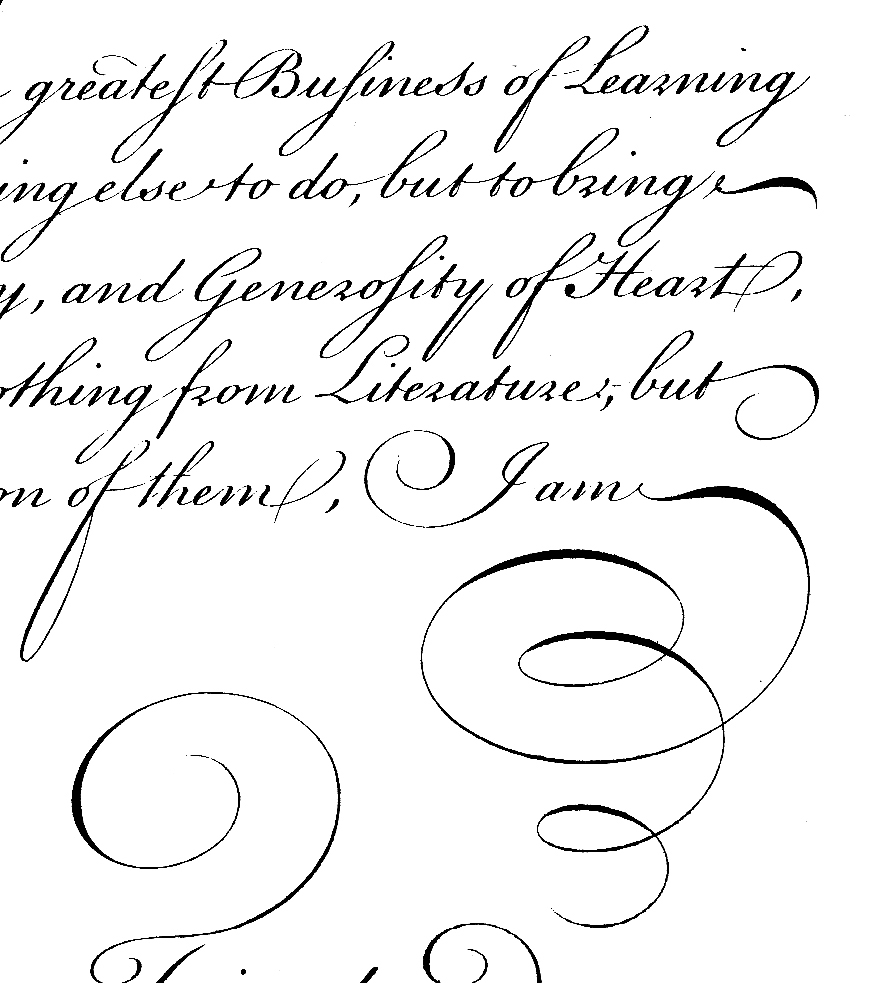 greatest Business of Learning
ing else to do, but to bring
y, and Generosity of Heart,
othing from Literature, but
on of them, I am